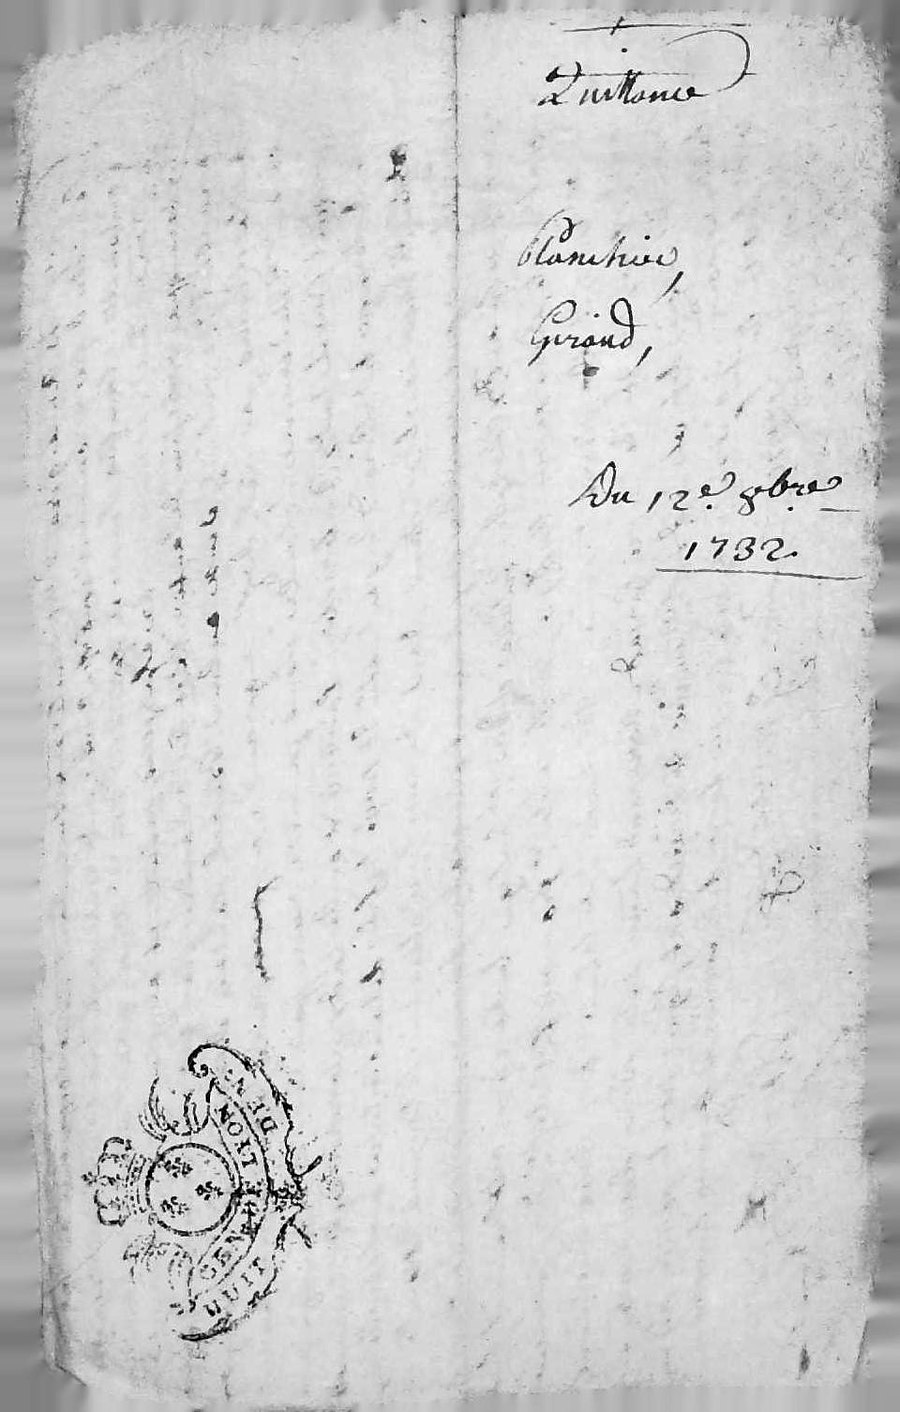 Quittance
Planchier,
Giraud,
Du 12e. 8bre
1732.
GEN. LYON
HUIT DEN.